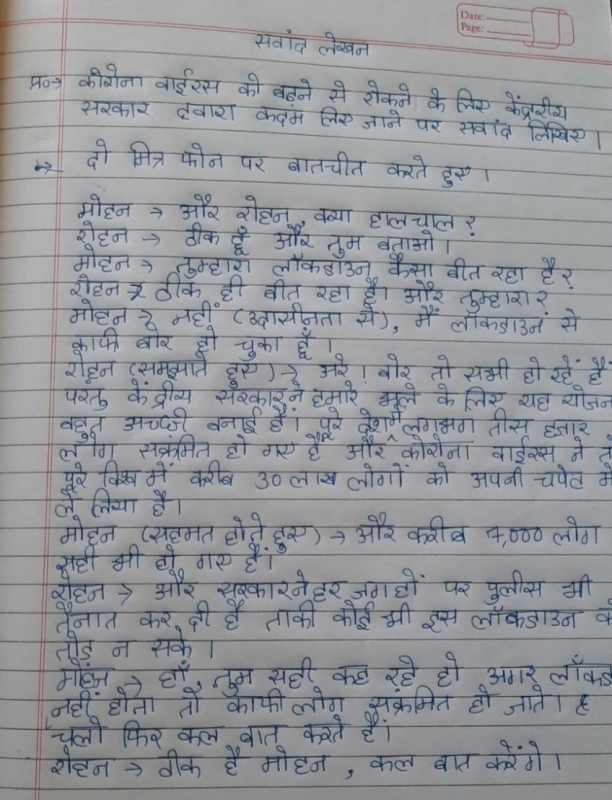 Date:
Page:
सवांद लेखन
प्र०→ कोरोना वाईरस को बढ़ने से रोकने के लिए केंद्ररीय
सरकार दवारा कदम लिए जाने पर सवांद लिखिए।
→ दो मित्र फोन पर बातचीत करते हुए।
मोहन → और रोहन, क्या हालचाल?
रोहन → ठीक हूँ और तुम बताओ।
मोहन → तुम्हारा लॉकडाउन कैसा बीत रहा है?
रोहन → ठीक ही बीत रहा है। और तुम्हारा?
मोहन → नहीं (उदासीनता से), मैं लॉकडाउन से
काफी बोर हो चुका हूँ।
रोहन (समझाते हुए) → अरे! बोर तो सभी हो रहें हैं
परंतु केंद्रीय सरकार ने हमारे भले के लिए यह योजन
बहुत अच्छी बनाई है। पूरे देश में लगभग तीस हज़ार
लोग संक्रमित हो गए हैं और कोरोना वाईरस ने त
पूरे विश्व में करीब 30 लाख लोगों को अपनी चपेट मे
ले लिया है।
मोहन (सहमत होते हुए) → और करीब 7,000 लोग
सही भी हो गए हैं।
रोहन → और सरकार ने हर जगहों पर पुलीस भी
तैनात कर दी है ताकी कोई भी इस लॉकडाउन क
तोड़ न सके।
मोहन → हाँ, तुम सही कह रहे हो अगर लॉकड
नहीं होता तो काफी लोग संक्रमित हो जाते।
चलो फिर कल बात करते हैं।
रोहन → ठीक है मोहन, कल बात करेंगे।